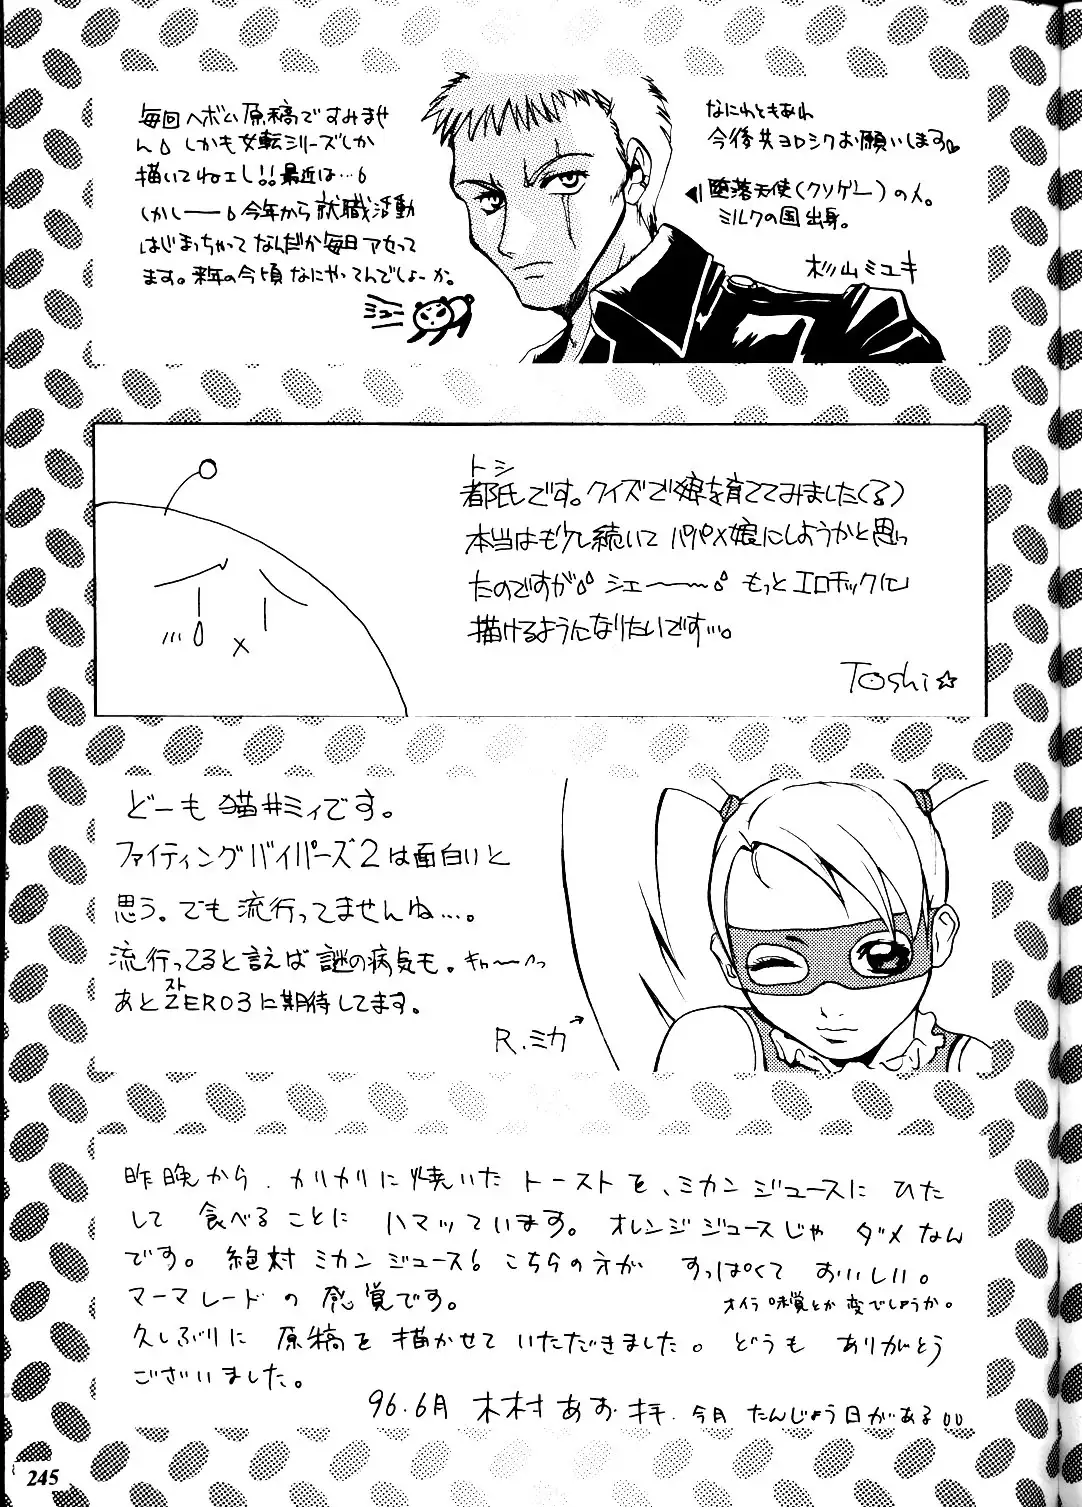 毎回ヘボい原稿ですみませ
ん。しかも女転シリーズしか
描いてねェし!!最近は…。
しかしー。今年から就職活動
はじまっちゃってなんだか毎日アセって
ます。来年の今頃なにやってんでしょーか。
ミュー
なにわともあれ
今後共ヨロシクお願いします♡
◀堕落天使(クソゲー)の人。
ミルクの国出身。
杉山ミユキ
トシ
都氏です。クイズで娘を育ててみました(る)
本当はも少し続いてパパ×娘にしようかと思っ
たのですが シェ〜〜 もっとエロチックに
描けるようになりたいです…。
Toshi☆
どーも猫井ミィです。
ファイティングバイパーズ2は面白いと
思う。でも流行ってませんね…。
流行ってると言えば謎の病気も。キャ〜っ
スト
あとZERO3に期待してます。
R.ミカ→
昨晩から、カリカリに焼いたトーストを、ミカンジュースにひた
して食べることにハマッています。オレンジジュースじゃダメなん
です。絶対ミカンジュース!こちらの方がすっぱくておいしい。
マーマレードの感覚です。
オイラ味覚とか変でしょうか。
久しぶりに原稿を描かせていただきました。どうもありがとう
ございました。
96.6月 木村あお拝. 今月たんじょう日がある
245